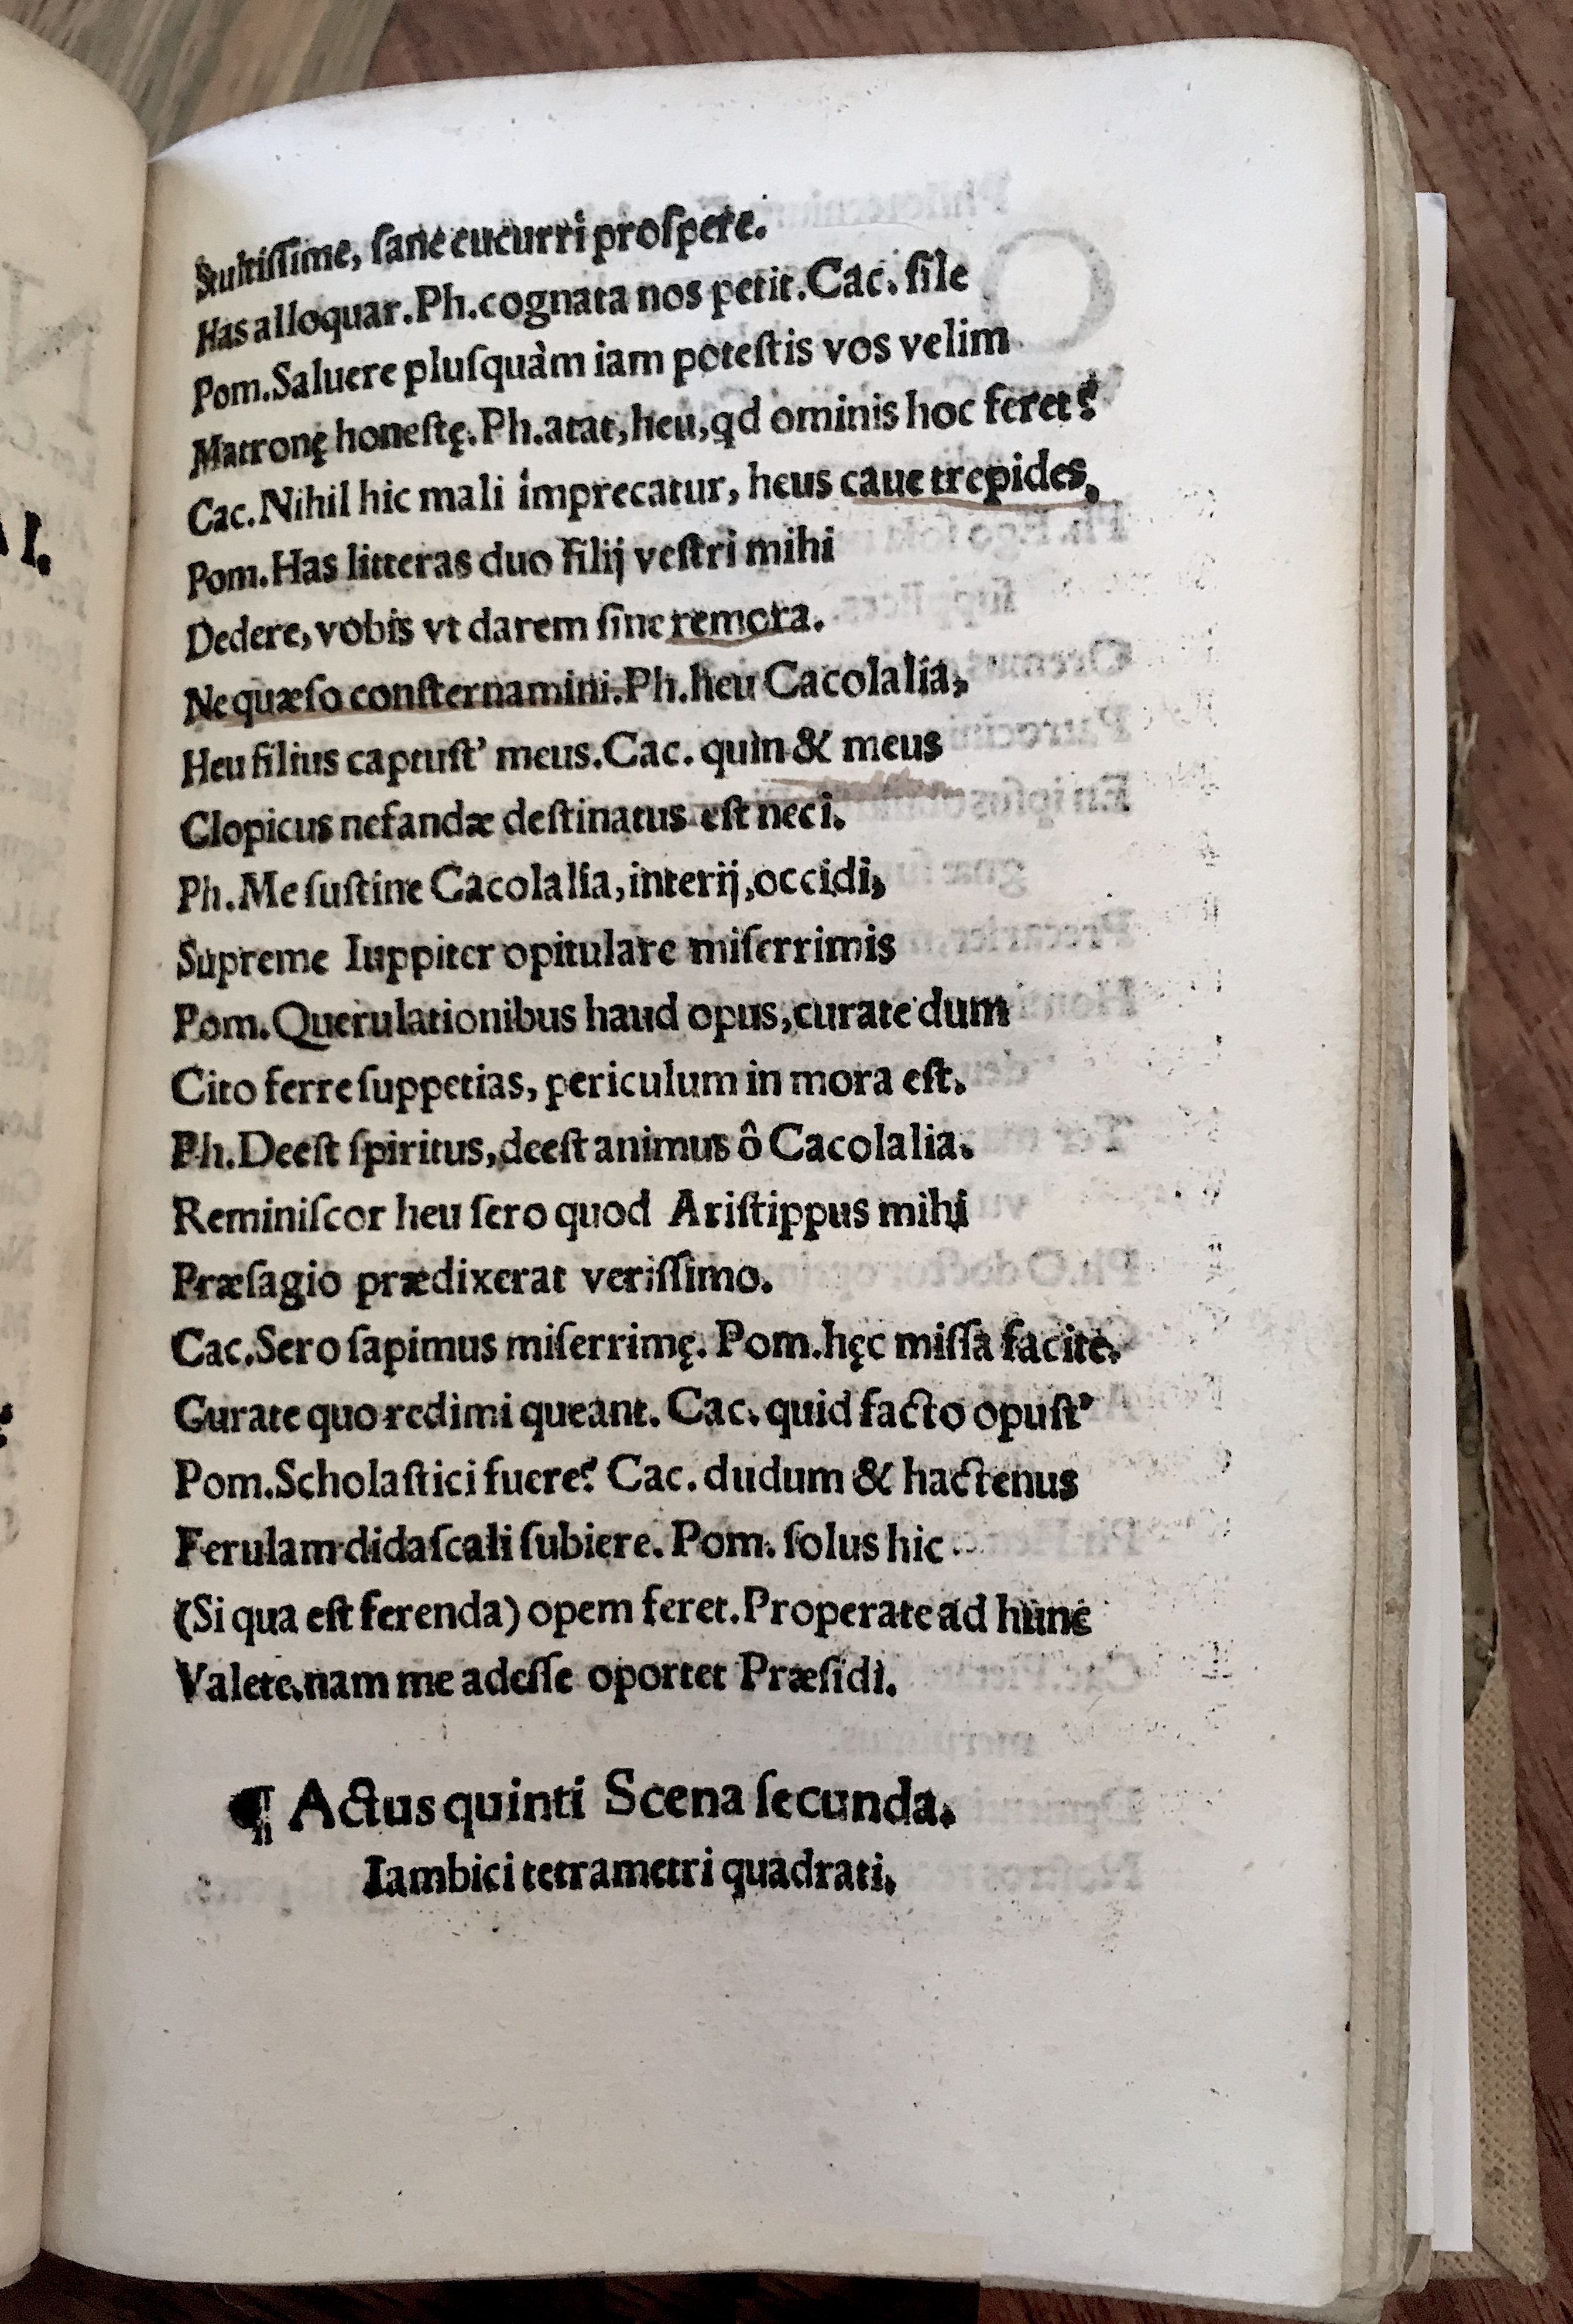 Stultiſſime, ſane cucurri proſpere.
Has alloquar. Ph. cognata nos petit. Cac. ſile
Pom. Saluere pluſquàm iam poteſtis vos velim
Matronę honeſtę. Ph. atat, heu, qd ominis hoc feret?
Cac. Nihil hic mali imprecatur, heus caue trepides,
Pom. Has litteras duo filij veſtri mihi
Dedere, vobis vt darem ſine remora.
Ne quæſo conſternamini. Ph. heu Cacolalia,
Heu filius captuſt' meus. Cac. quin & meus
Clopicus nefandæ deſtinatus eſt neci.
Ph. Me ſuſtine Cacolalia, interij, occidi,
Supreme Iuppiter opitulare miſerrimis
Pom. Querulationibus haud opus, curate dum
Cito ferre ſuppetias, periculum in mora eſt.
Ph. Deeſt ſpiritus, deeſt animus ô Cacolalia.
Reminiſcor heu ſero quod Ariſtippus mihi
Præſagio prædixerat veriſſimo.
Cac. Sero ſapimus miſerrimę. Pom. hęc miſſa facite.
Curate quo redimi queant. Cac. quid facto opuſt'
Pom. Scholaſtici fuere? Cac. dudum & hactenus
Ferulam didaſcali ſubiere. Pom. ſolus hic
(Si qua eſt ferenda) opem feret. Properate ad hunc
Valete, nam me adeſſe oportet Præſidi.
¶ Actus quinti Scena ſecunda.
Iambici tetrametri quadrati,